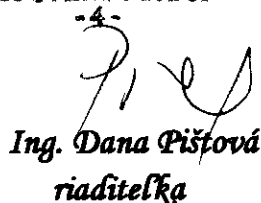 - 4 -
Ing. Dana Pišťová
riaditeľka